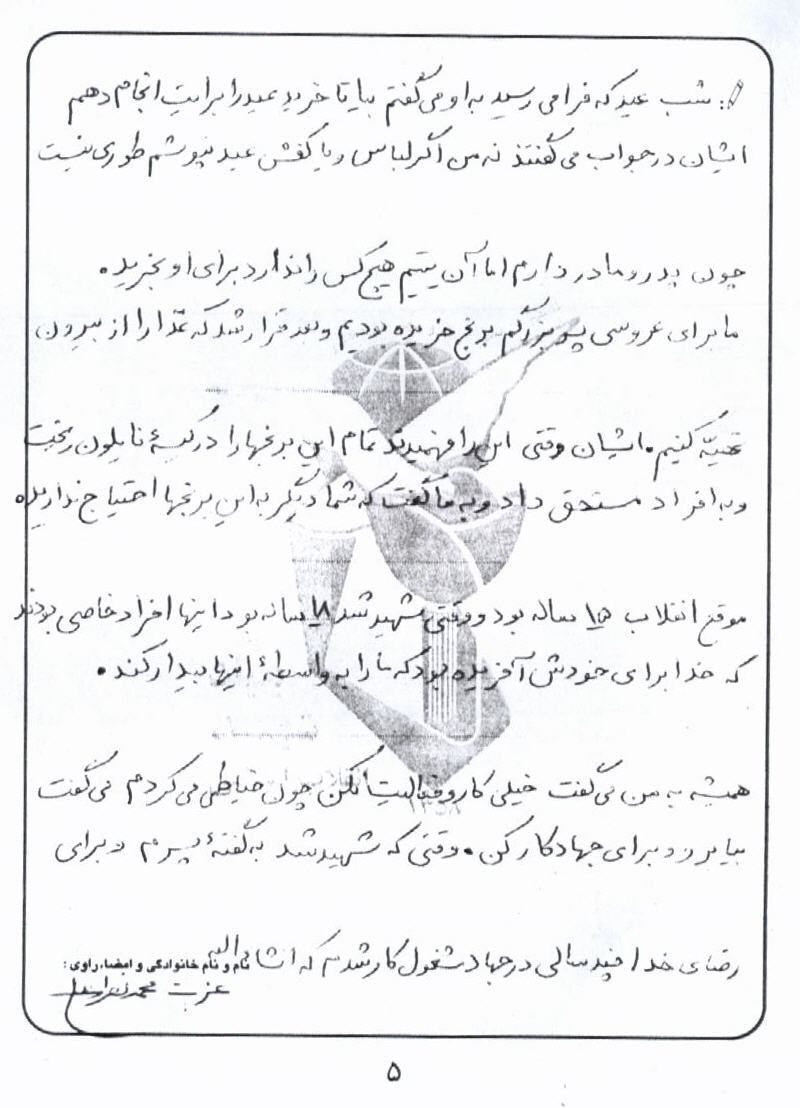 شب عید که فرا می رسید به او می گفتم بیا تا خرید عید را برایت انجام دهم
ایشان در جواب می گفتند نه من اگر لباس و یا کفش عید نپوشم طوری نیست
چون پدر و مادر دارم اما آن یتیم هیچ کس را ندارد برای او بخرید.
ما برای عروسی پسر بزرگم برنج خریده بودیم و بعد قرار شد که غذا را از بیرون
تهیّه کنیم. ایشان وقتی این را فهمیدند تمام این برنجها را در کیسۀ نایلون ریخت
و به افراد مستحق داد و به ما گفت که شما دیگر به این برنجها احتیاج ندارید.
موقع انقلاب ۱۵ ساله بود و وقتی شهید شد ۱۸ ساله بود اینها افراد خاصی بودند
که خدا برای خودش آفریده بود که ما را به واسطۀ اینها بیدار کند.
همیشه به من می گفت خیلی کار و فعالیت نکن چون خیاطی می کردم می گفت
بیا برو و برای جهاد کار کن. وقتی که شهید شد به گفتۀ پسرم و برای
رضای خدا چند سالی در جهاد مشغول کار شدم که انشاءالله
نام و نام خانوادگی و امضاء راوی:
عزت
۵